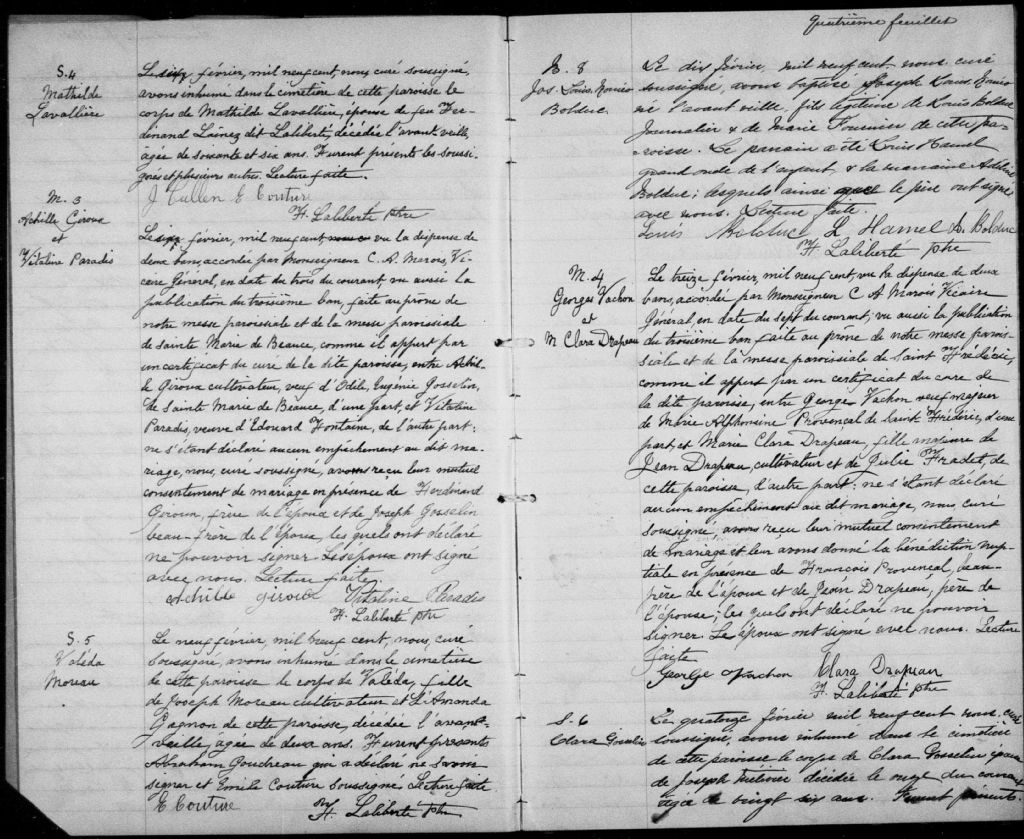 S. 4
Mathilde
Lavallière
Le six février, mil neuf cent, nous curé soussigné,
avons inhumé dans le cimetière de cette paroisse le
corps de Mathilde Lavallière, épouse de feu Fer-
dinand dit Laliberté, décédée l'avant veille,
âgée de soixante et six ans. Furent présents les soussi-
gnés et plusieurs autres. Lecture faite.
J Cullen E Couture
F. Laliberté ptre
M. 3
Achille Giroux
et
Vitaline Paradis
Le six février, mil neuf cent, vu la dispense de
deux bans, accordée par Monseigneur C. A. Marois, Vi-
caire Général, en date du trois du courant, vu aussi la
publication du troisième ban, faite au prône de
notre messe paroissiale et de la messe paroissiale
de Sainte Marie de Beauce, comme il appert par
un certificat du curé de la dite paroisse, entre Achil-
le Giroux cultivateur, veuf d'Odile, Eugénie Gosselin,
de Sainte Marie de Beauce, d'une part, et Vitaline
Paradis, veuve d'Edouard Fontaine, de l'autre part;
ne s'étant déclaré aucun empêchement au dit ma-
riage, nous, curé soussigné, avons reçu leur mutuel
consentement de mariage en présence de Ferdinand
Giroux, frère de l'époux et de Joseph Gosselin
beau-frère de l'époux, les quels ont déclaré
ne pouvoir signer. Les époux ont signé
avec nous. Lecture faite.
Achilde Giroux Vitaline Paradis
F. Laliberté ptre
S. 5
Valéda
Moreau
Le neuf février, mil neuf cent, nous, curé
soussigné, avons inhumé dans le cimetière
de cette paroisse le corps de Valéda, fille
de Joseph Moreau cultivateur et d'Amanda
Gagnon de cette paroisse, décédée l'avant-
veille, âgée de deux ans. Furent présents
Abraham Goudreau qui a déclaré ne savoir
signer et Emile Couture soussigné. Lecture faite
E Couture
F. Laliberté ptre
Quatrième feuillet
B. 8
Jos. Louis. Roméo
Bolduc
Le dix février, mil neuf cent nous curé
soussigné, avons baptisé Joseph Louis Roméo
né l'avant veille, fils légitime de Louis Bolduc
Journalier & de Marie Fournier de cette pa-
roisse. Le parrain a été Louis Hamel
grand oncle de l'enfant & la marraine Adéline
Bolduc; lesquels ainsi que le père ont signé
avec nous. Lecture faite.
Louis Bolduc L Hamel A. Bolduc
F. Laliberté ptre
M. 4
Georges Vachon
et
M Clara Drapeau
Le treize février, mil neuf cent, vu la dispense de deux
bans, accordée par Monseigneur C A Marois Vicaire
Général, en date du sept du courant; vu aussi la publication
du troisième ban faite au prône de notre messe parois-
siale et de la messe paroissiale de Saint Frédéric,
comme il appert par un certificat du curé de
la dite paroisse, entre George Vachon veuf majeur
de Marie Alphonsine Provençal de Saint Frédéric, d'une
part, et Marie Clara Drapeau, fille majeure de
Jean Drapeau, cultivateur et de Julie Fradet, de
cette paroisse, d'autre part: ne s'étant déclaré
aucun empêchement au dit mariage, nous curé
soussigné, avons reçu leur mutuel consentement
de mariage et leur avons donné la bénédiction nup-
tiale en présence de François Provençal, beau-
père de l'époux et de Jean Drapeau, père de
l'épouse; les quels ont déclaré ne pouvoir
signer. Les époux ont signé avec nous. Lecture
faite
George Vachon Clara Drapeau
F. Laliberté ptre
S. 6
Clara Gosselin
Le quatorze février mil neuf cent nous, curé
soussigné, avons inhumé dans le cimetière
de cette paroisse le corps de Clara Gosselin épouse
de Joseph décédée le onze du courant
âgée de vingt six ans. Furent présents.